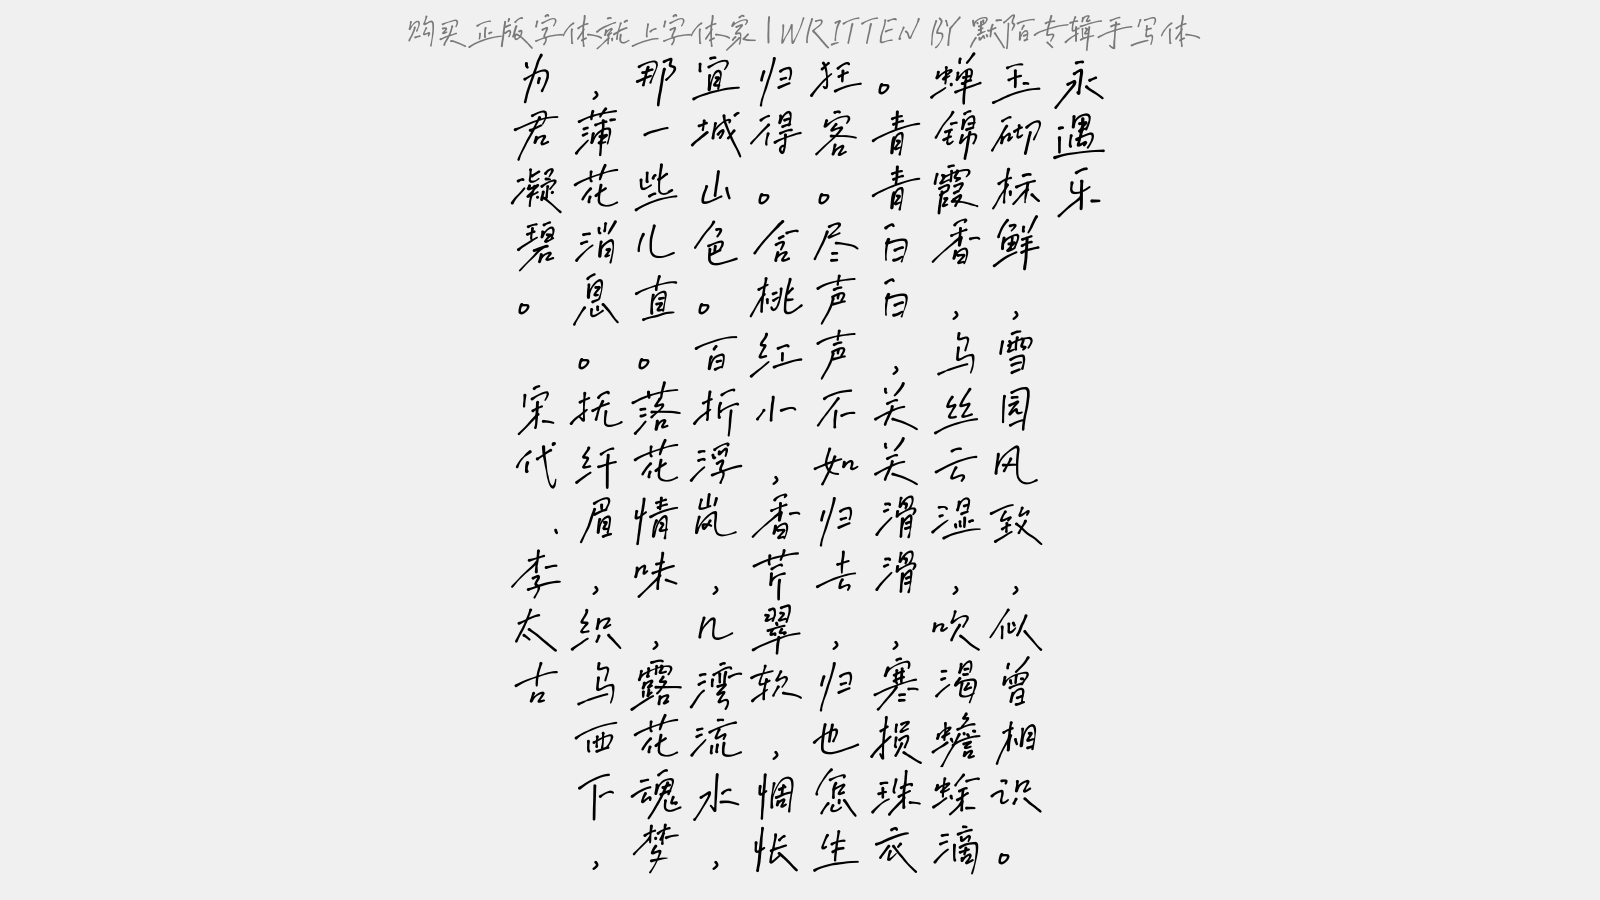 购买正版字体就上字体家 | WRITTEN BY 默陌专辑手写体
永遇乐
玉砌标鲜，雪园风致，似曾相识。
蝉锦霞香，乌丝云湿，吹渴蟾蜍滴。
青青白白，关关滑滑，寒损珠衣
狂客。尽声声不如归去，归也怎生
归得。含桃红小，香芹翠软，惆怅
宜城山色。百折浮岚，几湾流水，
那一些儿直。落花情味，露花魂梦
，蒲花消息。抚纤眉，织乌西下，
为君凝碧。宋代、李太古